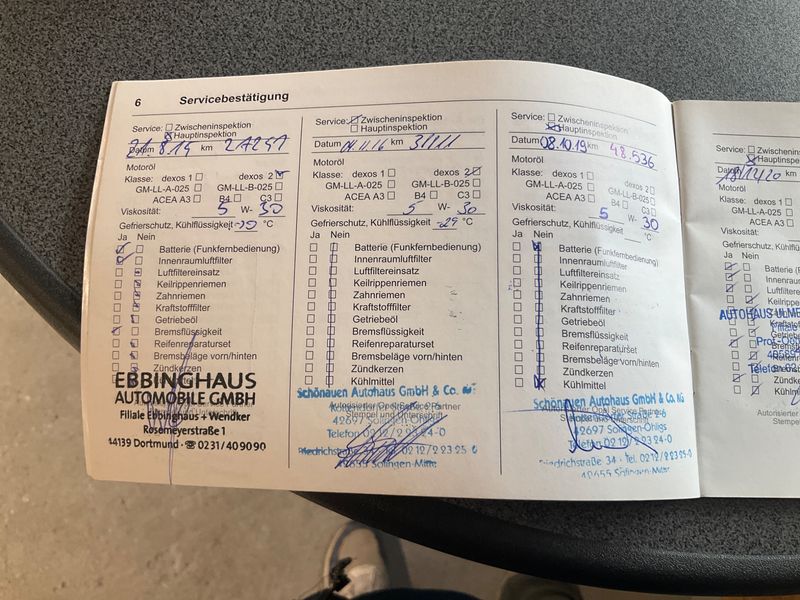 6 Servicebestätigung
Service: Zwischeninspektion
Hauptinspektion
Datum km
Motoröl
Klasse: dexos 1 dexos 2
GM-LL-A-025 GM-LL-B-025
ACEA A3 B4 C3
Viskosität: 5 W- 30
Gefrierschutz, Kühlflüssigkeit °C
Ja Nein
Batterie (Funkfernbedienung)
Innenraumluftfilter
Luftfiltereinsatz
Keilrippenriemen
Zahnriemen
Kraftstofffilter
Getriebeöl
Bremsflüssigkeit
Reifenreparaturset
Bremsbeläge vorn/hinten
Zündkerzen
EBBINGHAUS
AUTOMOBILE GMBH
Filiale Ebbinghaus + Wendker
Rosemeyerstraße 1
44139 Dortmund · ☎ 0231/409090
Service: Zwischeninspektion
Hauptinspektion
Datum km 31111
Motoröl
Klasse: dexos 1 dexos 2
GM-LL-A-025 GM-LL-B-025
ACEA A3 B4 C3
Viskosität: 5 W- 30
Gefrierschutz, Kühlflüssigkeit -29 °C
Ja Nein
Batterie (Funkfernbedienung)
Innenraumluftfilter
Luftfiltereinsatz
Keilrippenriemen
Zahnriemen
Kraftstofffilter
Getriebeöl
Bremsflüssigkeit
Reifenreparaturset
Bremsbeläge vorn/hinten
Zündkerzen
Kühlmittel
Schönauen Autohaus GmbH & Co.
Autorisierter Opel Service Partner
Stempel und Unterschrift
42697 Solingen-Ohligs
Telefon 02 12/2 23 24-0
Friedrichstraße
42655 Solingen-Mitte
Service: Zwischeninspektion
Hauptinspektion
Datum 08.10.19 km 48.536
Motoröl
Klasse: dexos 1 dexos 2
GM-LL-A-025 GM-LL-B-025
ACEA A3 B4 C3
Viskosität: 5 W- 30
Gefrierschutz, Kühlflüssigkeit °C
Ja Nein
Batterie (Funkfernbedienung)
Innenraumluftfilter
Luftfiltereinsatz
Keilrippenriemen
Zahnriemen
Kraftstofffilter
Getriebeöl
Bremsflüssigkeit
Reifenreparaturset
Bremsbeläge vorn/hinten
Zündkerzen
Kühlmittel
Schönauen Autohaus GmbH & Co. KG
Autorisierter Opel Service Partner
42697 Solingen-Ohligs
Telefon 02 12/2 23 24-0
Friedrichstraße 34 · Tel. 02 12/2 23 25-0
42655 Solingen-Mitte
Service:
Hauptinspektion
Datum km
Motoröl
Klasse: dexos 1
GM-LL-A-025
ACEA A3
Viskosität:
Gefrierschutz, Kühlflüssigkeit
Ja Nein
AUTOHAUS
Telefon
Autorisierter